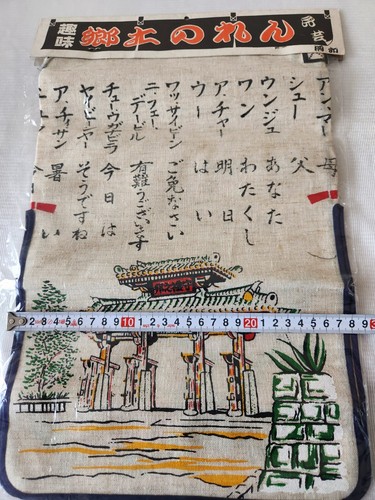 趣味 郷土のれん 民芸
アンマー 母
シュー 父
ウンジュ あなた
ワン わたくし
アチャー 明日
ウー はい
ワッサイビン ごめんなさい
ニフェーデービル 有難うございます
チューウガナビラ 今日は
ヤイビーヤー そうですね
ア、チィサン 暑い
守禮之邦
2 3 4 5 6 7 8 9 10 1 2 3 4 5 6 7 8 9 20 1 2 3 4 5 6 7 8 9 3